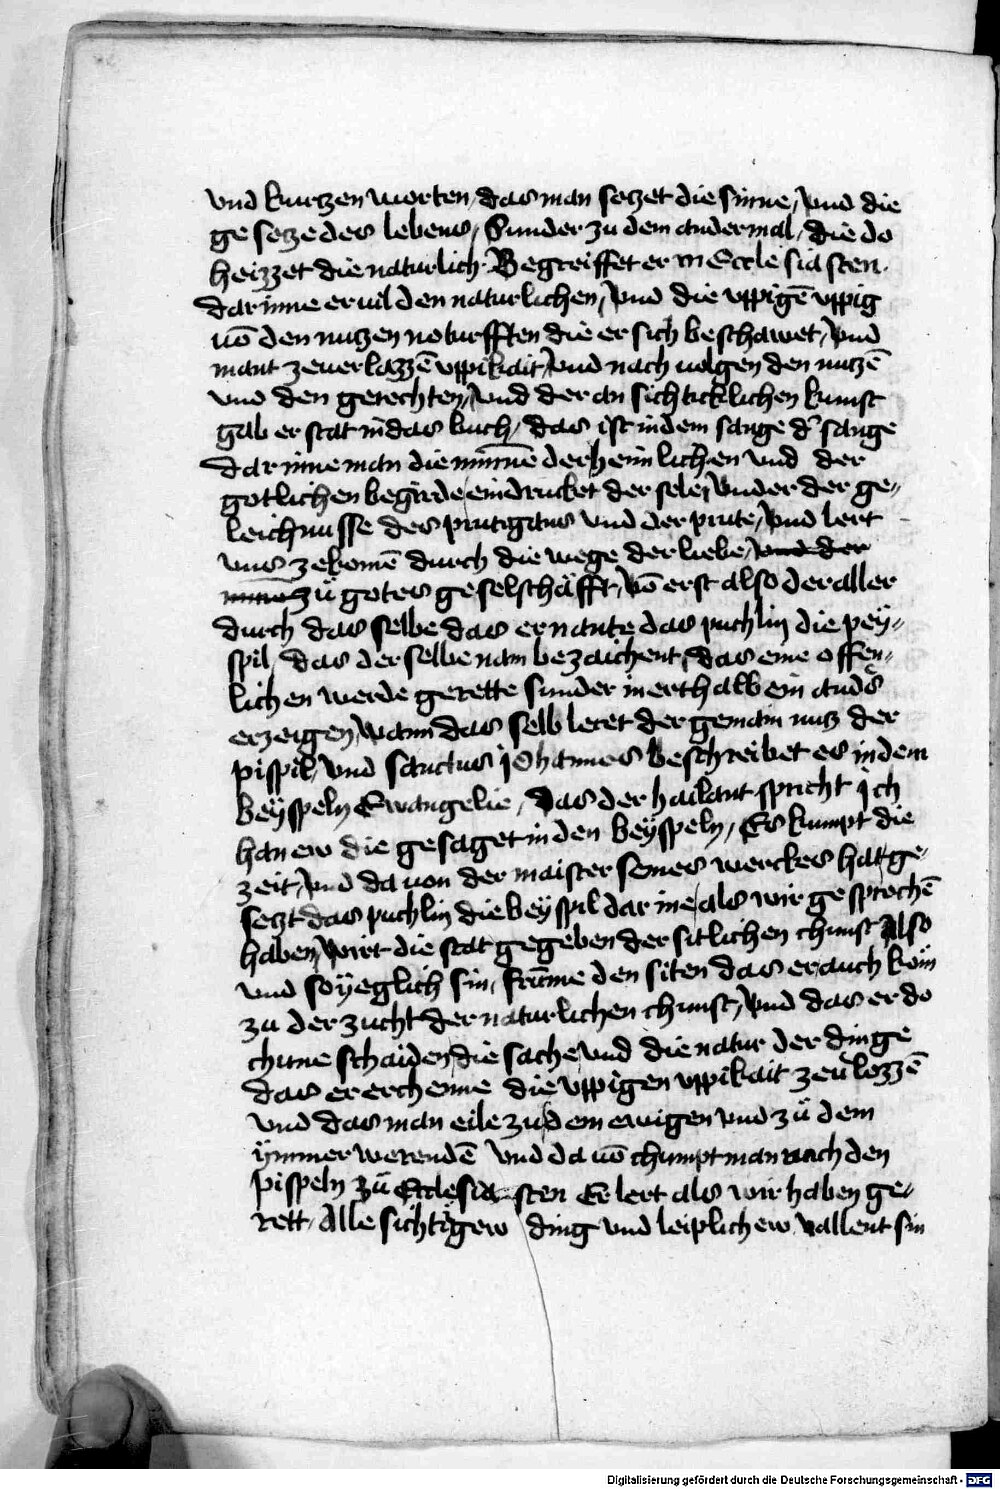 vnd kurtzen worten, das man setzet die sinne, vnd die
ge setze des lebens, Sunder zu dem andermal, die do
heizzet die naturlich. Begreiffet er in Eccle siasten.
dar inne er vil den naturlichen, vnd die vppigē vppig
uō den nutzen noturfften die er sich beschawet, vnd
mant zeuerlazzē vppikait, vnd nach uolgen den nutzē
vnd den gerechten, vnd der an sichticklichen kunst
gab er stat in das buch, das ist in dem sange d' sange
dar inne man die minne der heimlichen vnd der
gotlichen begirde eindrucket der sele, vnder der ge-
leichnusse des prutigans vnd der prute, vnd lert
vns zekomē durch die wege der liebe, vnd der
minne zů gotes geselschäfft, vō erst also der aller
durch das selbe das er nante das puchlin die pey-
spil, das der selbe nam bezaichent, das eine offen-
lichen werde gerette sunder inerthalb ein and's
erzeigen, wann das selb leret der gemain nutz der
pispil, vnd sanctus johannes beschreibet es in dem
beÿspeln Ewangelie, das der hailant spricht jch
han ew die gesaget in den beÿspeln, Es kumpt die
zeit, vnd da uon der maister seines werckes hat ge-
setzt das puchlin die beÿspil dar ine, als wir gesprochē
haben, wirt die stat gegeben der sitlichen chunst Also
vnd so ÿeglich sin, frūme den siten das er auch köm
zu der zucht der naturlichen chunst, vnd das er do
chunne schaiden, die sache vnd die natur der dinge
das er erchenne die vppigen vppikait zeulozzē
vnd das man eile zu dem ewigen vnd zů dem
ÿmmer werendē vnd da uō chumpt man nach den
pispeln zů Ecclesia sten Er lert als wir haben ge-
rett. Alle sichtigew ding vnd leiplichew, vallent sin
Digitalisierung gefördert durch die Deutsche Forschungsgemeinschaft - DFG